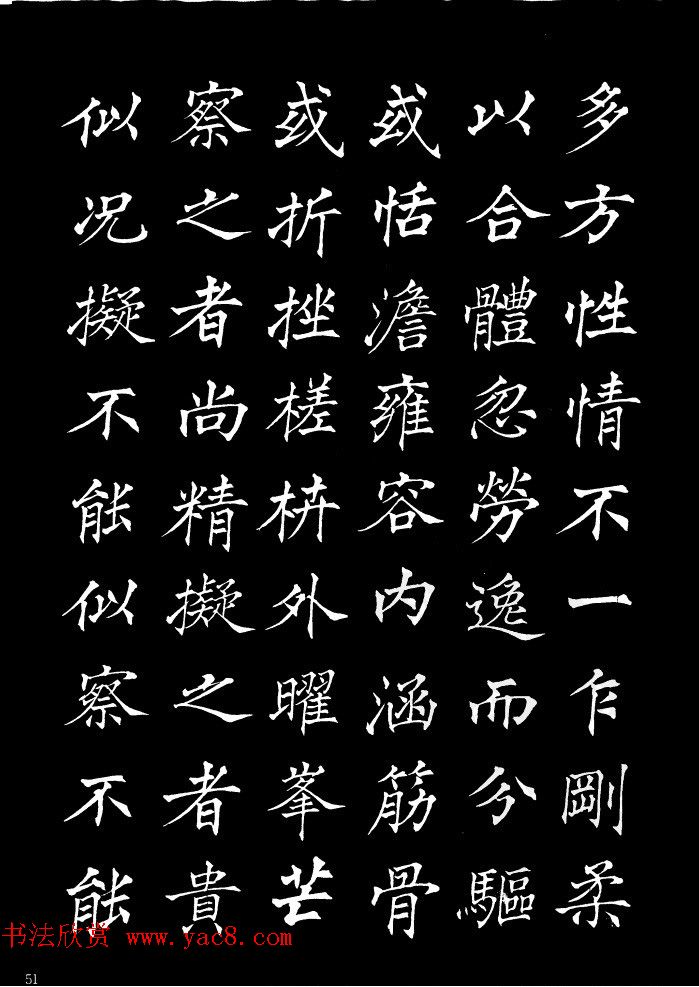 多方性情不一乍剛柔
以合體忽勞逸而分驅
或恬澹雍容内涵筋骨
或折挫槎枿外曜峯芒
察之者尚精擬之者貴
似况擬不能似察不能
书法欣赏 www.yac8.com
51